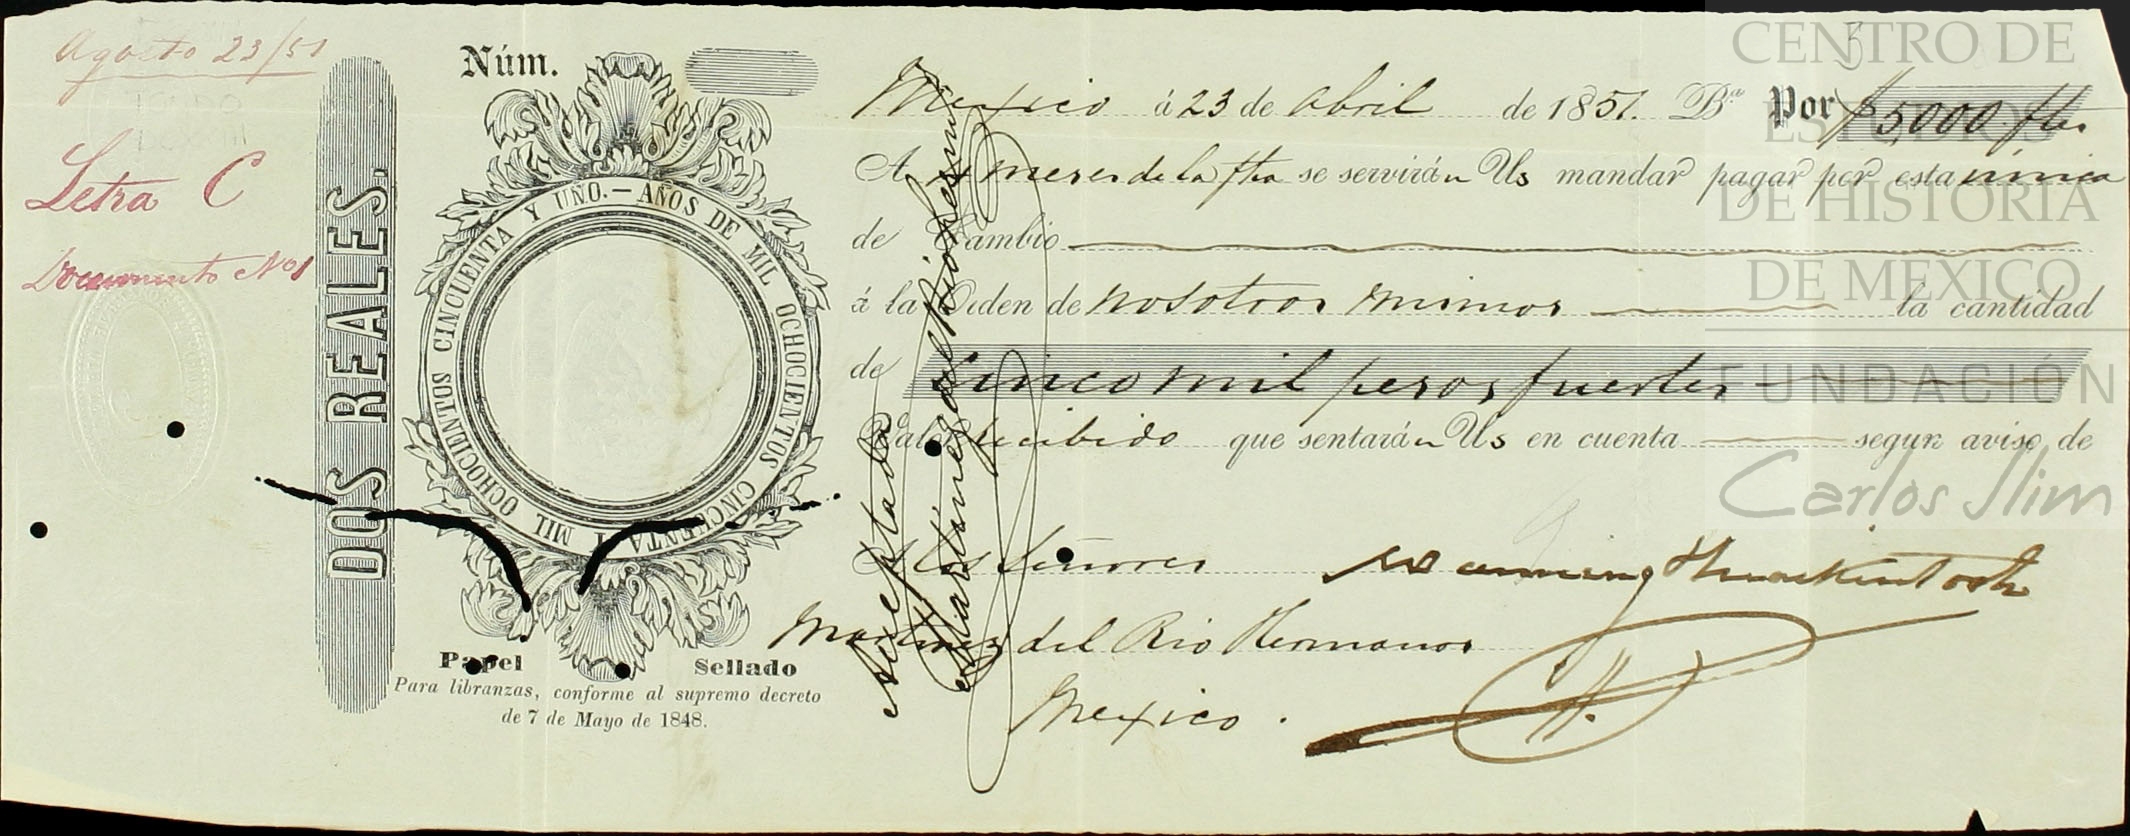 Agosto 23/51
Letra C
Documento Nº 1
DOS REALES.
Núm.
MIL OCHOCIENTOS CINCUENTA Y UNO.— AÑOS DE MIL OCHOCIENTOS CINCUENTA
Papel Sellado
Para libranzas, conforme al supremo decreto
de 7 de Mayo de 1848.
Mexico á 23 de Abril de 1851. Bn Por $5,000 ftes
A 4 meses de la fha se servirán Us mandar pagar por esta única
de Cambio
á la Orden de nosotros mismos la cantidad
de Cinco mil pesos fuertes
Valor recibido que sentarán Us en cuenta segun aviso de
A los Señores Manning & Mackintosh
Martinez del Rio Hermanos
Mexico.
Aceptada
Martinez del Rio Hermanos
CENTRO DE
ESTUDIOS
DE HISTORIA
DE MEXICO
FUNDACIÓN
Carlos Slim